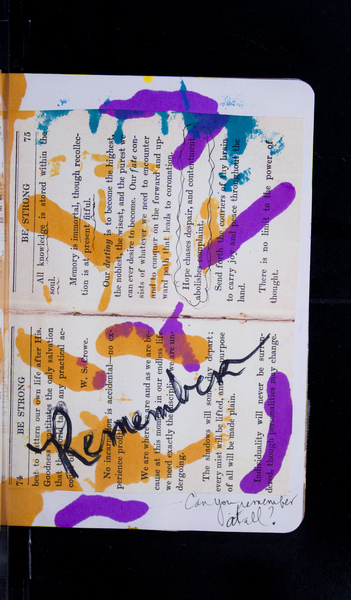 74
BE STRONG
best to pattern our own life after His.
Goodness constitutes the only salvation
that any practical ac-
W. S. Crowe.
No incarnation is accidental—no ex-
perience
We are where we are and as we are be-
cause at this moment in our endless life
we need exactly the discipline we are un-
dergoing.
The shadows will some day depart;
every mist will be lifted, and purpose
of all will be made plain.
Individuality will never be surren-
dered, though personalities may change.
Remember
Can you remember
at all?
BE STRONG
75
All knowledge is stored within the
soul.
Memory is immortal, though recollec-
tion is at present fitful.
Our destiny is to become the highest,
the noblest, the wisest, and the purest we
can ever desire to become. Our fate con-
sists of whatever we need to encounter
and to conquer on the forward and up-
ward path that leads to coronation.
Hope chases despair, and contentment
abolishes complaint.
Send forth the couriers of thy brain
to carry joy and peace throughout the
land.
There is no limit to the power of
thought.